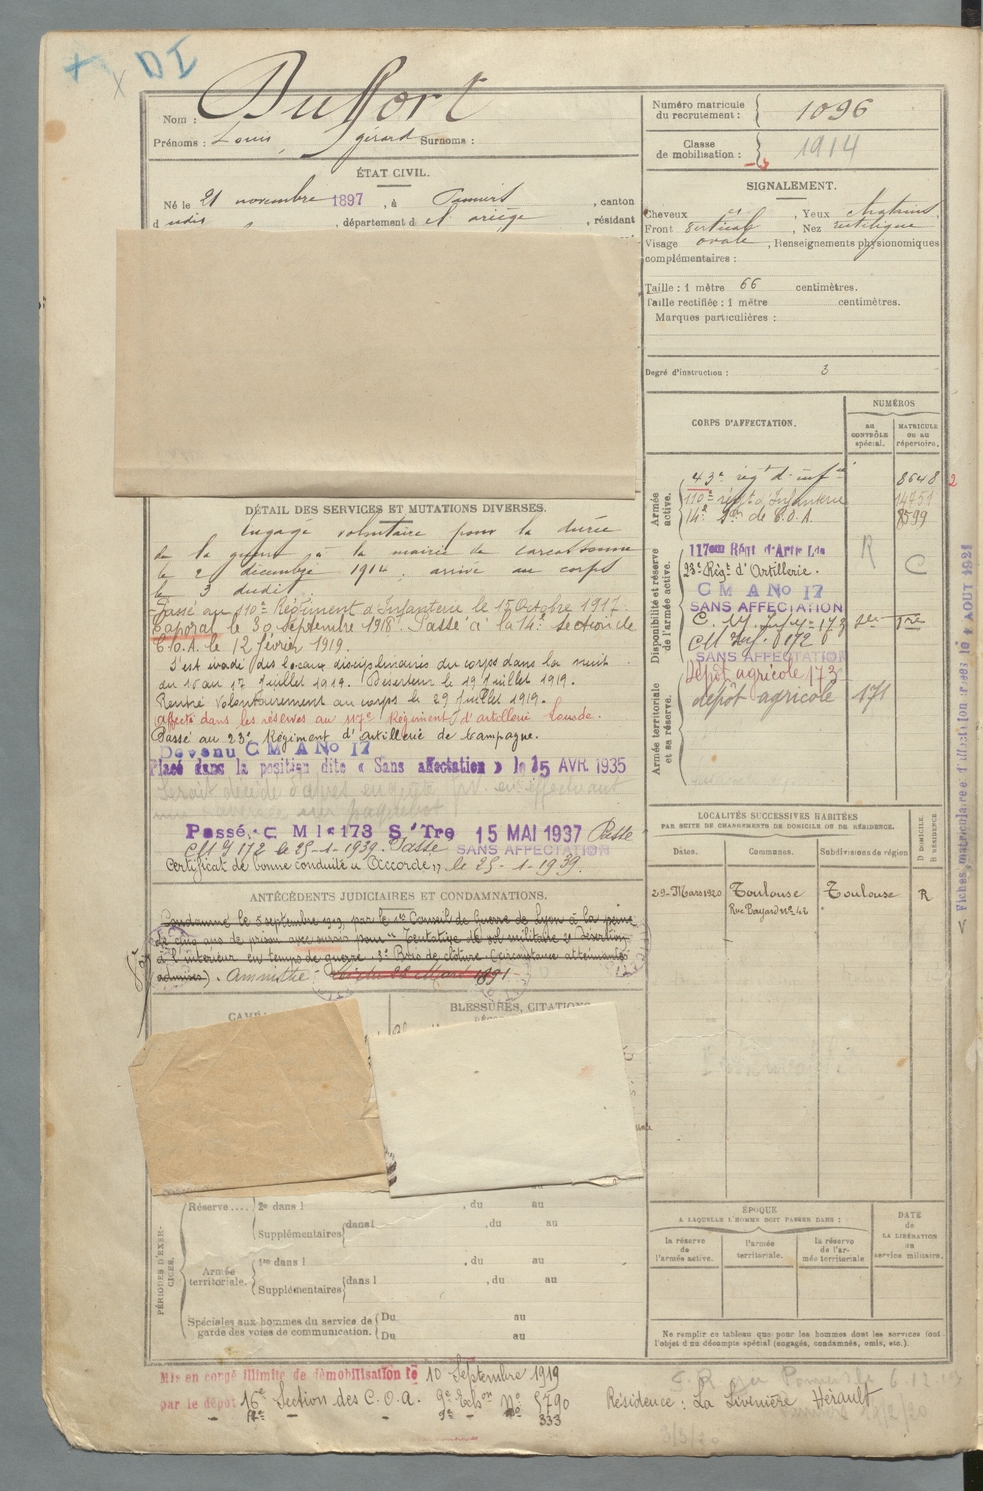 DI
Nom : Duffort
Prénoms : Louis, gérard Surnoms :
ÉTAT CIVIL.
Né le 21 novembre 1897, à Pamiers, canton
dudis, département d el' ariège, résidant
Numéro matricule du recrutement : 1096
Classe de mobilisation : 1914
SIGNALEMENT.
Cheveux, Yeux chatains,
Front vertical, Nez rectiligne
Visage ovale, Renseignements physionomiques
complémentaires :
Taille : 1 mètre 66 centimètres.
Taille rectifiée : 1 mètre centimètres.
Marques particulières :
Degré d'instruction : 3
CORPS D'AFFECTATION.
NUMÉROS
AU CONTRÔLE spécial.
MATRICULE OU AU répertoire.
Armée active.
43e régt d'infie 8648 2
110e régt d'Infanterie
14e Son de C.O.A. 8599
Disponibilité et réserve de l'armée active.
117em Régt d'Artie Lde R
23e Régt d'Artillerie. C
C M A No 17
SANS AFFECTATION
SANS AFFECTATION
Armée territoriale et sa réserve.
Dépôt agricole 173
dépôt agricole 171
DÉTAIL DES SERVICES ET MUTATIONS DIVERSES.
Engagé volontaire pour la durée
de la guerre à la mairie de Carcassonne
le 2 décembre 1914, arrivé au corps
le 3 dudit
Passé au 110e Régiment d'Infanterie le 15 Octobre 1917.
Caporal le 30 septembre 1918. Passé à la 14e section de
C.O.A. le 12 février 1919.
S'est évadé des locaux disciplinaires du corps dans la nuit
du 16 au 17 Juillet 1919. Déserteur le 19 Juillet 1919.
Rentré volontairement au corps le 29 Juillet 1919.
Affecté dans les réserves au 117e Régiment d'artillerie Lourde.
Passé au 23e Régiment d'artillerie de Campagne.
Devenu C M A No 17
Placé dans la position dite « Sans affectation » le 15 AVR. 1935
Passé C M I 173 S/Tre 15 MAI 1937 Passé
CM I 172 le 25-1-1939. Passé SANS AFFECTATION
Certificat de bonne conduite "Accordé", le 25-1-1939.
ANTÉCÉDENTS JUDICIAIRES ET CONDAMNATIONS.
Condamné le 5 septembre 1919, par le 1er Conseil de Guerre de Lyon à la peine
de cinq ans de prison avec sursis pour "Tentative de vol militaire 2° Désertion
à l'intérieur en temps de guerre 3° Bris de clôture (circonstances atténuantes
admises). Amnistié
LOCALITÉS SUCCESSIVES HABITÉES
PAR SUITE DE CHANGEMENTS DE DOMICILE OU DE RÉSIDENCE.
Dates. Communes. Subdivisions de région D DOMICILE. R RÉSIDENCE
29-Mars 1920 Toulouse Toulouse R
Rue Bayard No 42
BLESSURES, CITATIONS
PÉRIODES D'EXERCICES.
Réserve.... 2e dans l , du au
Supplémentaires dans l , du au
Armée territoriale. 1re dans l , du au
Supplémentaires dans l , du au
Spéciales aux hommes du service de garde des voies de communication. Du au
Du au
ÉPOQUE
A LAQUELLE L'HOMME DOIT PASSER DANS :
la réserve de l'armée active.
l'armée territoriale.
la réserve de l'armée territoriale
DATE de LA LIBÉRATION du service militaire.
Ne remplir ce tableau que pour les hommes dont les services font
l'objet d'un décompte spécial (engagés, condamnés, omis, etc.).
Mis en congé illimité de démobilisation le 10 Septembre 1919
par le dépôt 16e Section des C.O.A. 9e Echon No 5790
333
Résidence : La Livinière Hérault